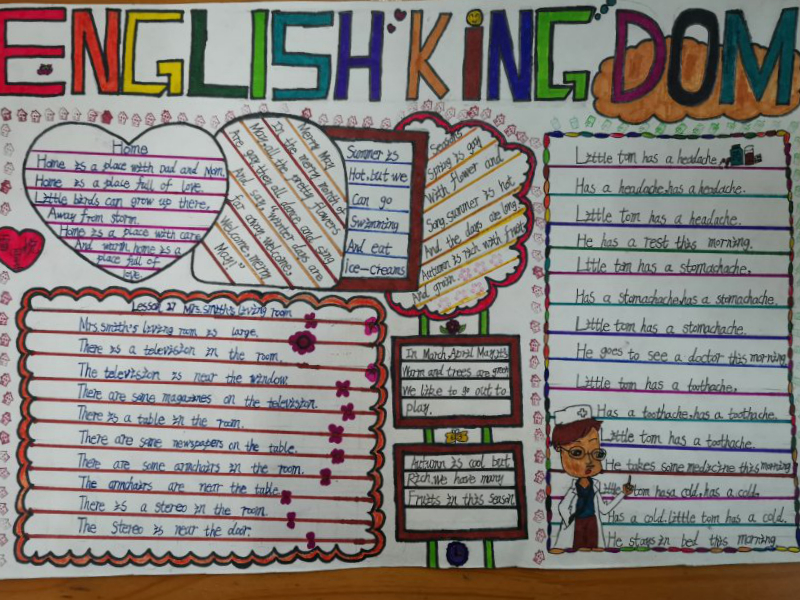 ENGLISH "KING" DOM
Home
Home is a place with Dad and Mom
Home is a place full of love.
Little birds can grow up there,
Away from storm.
Home is a place with care
And warm home is a
place full of
love.
Merry May
In the merry month of
May, all the pretty flowers
Are gay then all dance and sing
And say "winter days are
far away welcome,
Welcome, merry
May!"
Summer is
Hot, but we
Can go
Swimming
And eat
Ice-creams
Seasons
Spring is gay
with flower and
Song, summer is hot
And the days are long,
Autumn is rich with fruit
And grain
Lesson 27 Mrs. Smith's living room
Mrs. Smith's living room is large.
There is a television in the room.
The television is near the window.
There are some magazines on the television.
There is a table in the room.
There are some newspapers on the table.
There are some armchairs in the room.
The armchairs are near the table.
There is a stereo in the room.
The stereo is near the door.
In March, April May, it's
Warm and trees are green
We like to go out to
play.
Autumn is cool but
Rich, we have many
Fruits in this season
Little tom has a headache
Has a headache, has a headache.
Little tom has a headache.
He has a rest this morning.
Little tom has a stomachache,
Has a stomachache, has a stomachache.
Little tom has a stomachache.
He goes to see a doctor this morning
Little tom has a toothache,
Has a toothache, has a toothache.
Little tom has a toothache.
He takes some medicine this morning
Little tom has a cold, has a cold,
Has a cold. little tom has a cold,
He stays in bed this morning